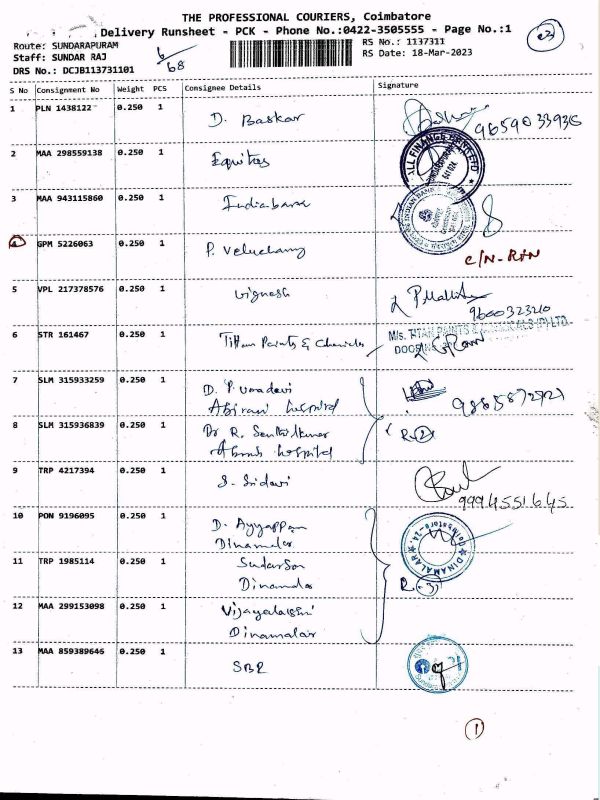 THE PROFESSIONAL COURIERS, Coimbatore
Delivery Runsheet - PCK - Phone No.:0422-3505555 - Page No.:1
23
Route: SUNDARAPURAM
6/68
RS No.: 1137311
Staff: SUNDAR RAJ
RS Date: 18-Mar-2023
DRS No.: DCJB113731101
S No Consignment No Weight PCS Consignee Details Signature
1 PLN 1438122 0.250 1 D. Baskar
2 MAA 298559138 0.250 1 Equitas
3 MAA 943115860 0.250 1 Indiabank
INDIAN BANK
GPM 5226063 0.250 1 P. Veluchamy
C/N-RTN
5 VPL 217378576 0.250 1 Vignesh
9600323210
6 STR 161467 0.250 1 Tittan Paints & Chemicals
M/s. TITAN PAINTS & CHEMICALS (P) LTD.
7 SLM 315933259 0.250 1 D. P. Umadevi
Abirami hospital
9865872721
8 SLM 315936839 0.250 1 Dr R. Senthilkumar
hospital
R-2
9 TRP 4217394 0.250 1 S. Sridevi
9994551645
10 PON 9196095 0.250 1 D. Ayyappan
Dinamalar
DINAMALAR
Coimbatore-24.
11 TRP 1985114 0.250 1 Sudarson
Dinamalar
R-3
12 MAA 299153098 0.250 1 Vijayalaxmi
Dinamalar
13 MAA 859389646 0.250 1 SBR
1